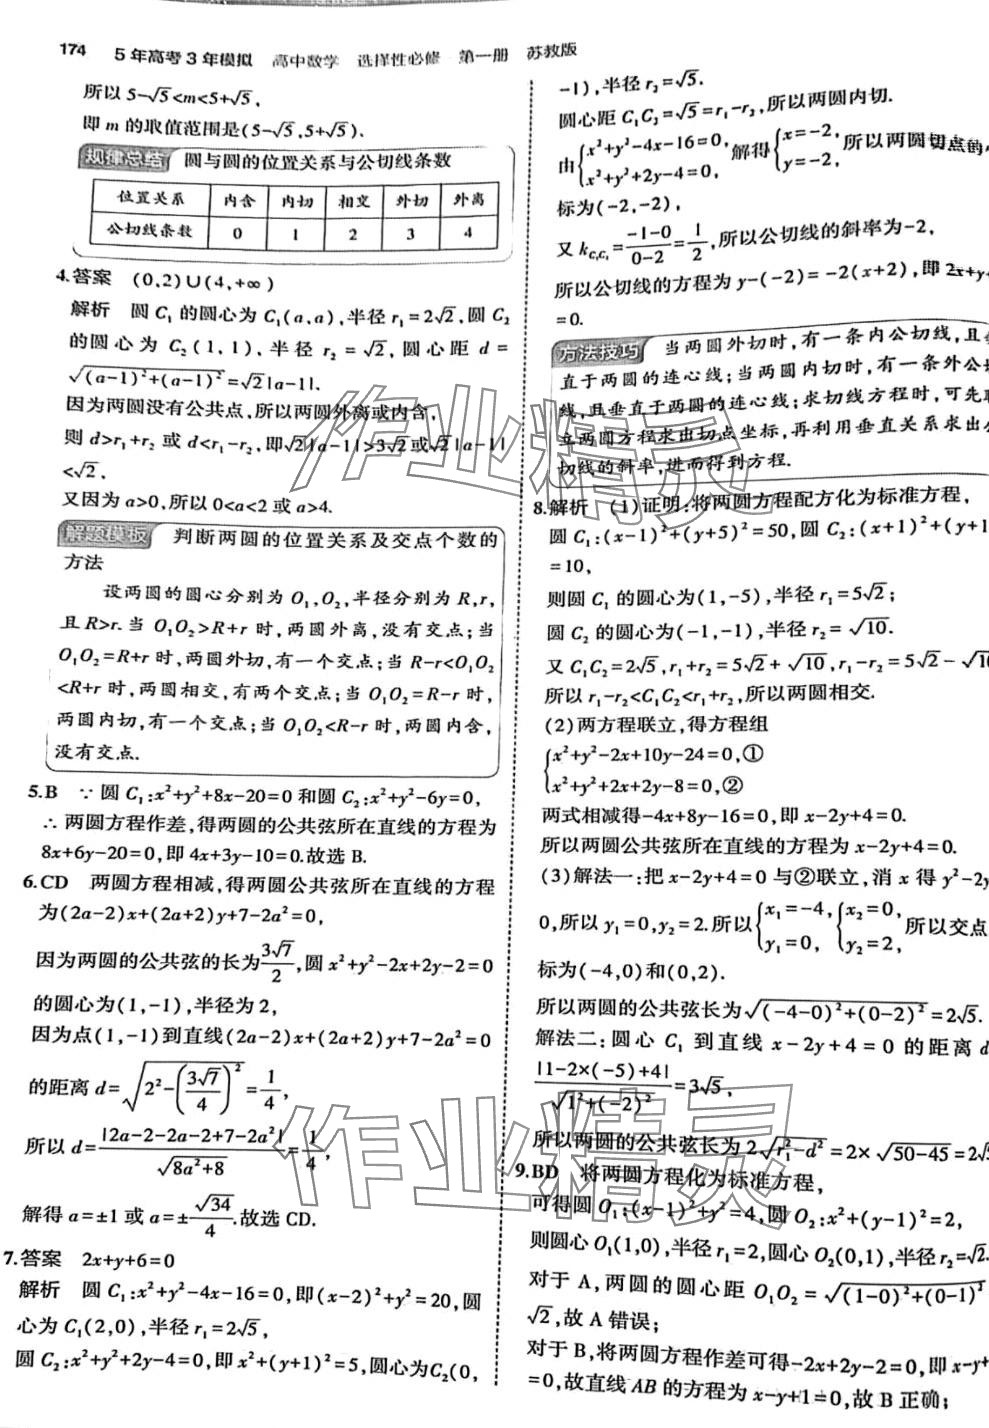 174 5年高考3年模拟 高中数学 选择性必修 第一册 苏教版
所以5-√5<m<5+√5,
即m的取值范围是(5-√5,5+√5).
规律总结 圆与圆的位置关系与公切线条数
位置关系 内含 内切 相交 外切 外离
公切线条数 0 1 2 3 4
4.答案 (0,2)∪(4,+∞)
解析 圆C₁的圆心为C₁(a,a),半径r₁=2√2,圆C₂
的圆心为C₂(1,1),半径r₂=√2,圆心距d=
√((a-1)²+(a-1)²)=√2|a-1|.
因为两圆没有公共点,所以两圆外离或内含,
则d>r₁+r₂或d<r₁-r₂,即√2|a-1|>3√2或√2|a-1|
<√2,
又因为a>0,所以0<a<2或a>4.
解题模板 判断两圆的位置关系及交点个数的
方法
设两圆的圆心分别为O₁,O₂,半径分别为R,r,
且R>r.当O₁O₂>R+r时,两圆外离,没有交点;当
O₁O₂=R+r时,两圆外切,有一个交点;当R-r<O₁O₂
<R+r时,两圆相交,有两个交点;当O₁O₂=R-r时,
两圆内切,有一个交点;当O₁O₂<R-r时,两圆内含,
没有交点.
5.B ∵圆C₁:x²+y²+8x-20=0和圆C₂:x²+y²-6y=0,
∴两圆方程作差,得两圆的公共弦所在直线的方程为
8x+6y-20=0,即4x+3y-10=0.故选B.
6.CD 两圆方程相减,得两圆公共弦所在直线的方程
为(2a-2)x+(2a+2)y+7-2a²=0,
因为两圆的公共弦的长为3√7/2,圆x²+y²-2x+2y-2=0
的圆心为(1,-1),半径为2,
因为点(1,-1)到直线(2a-2)x+(2a+2)y+7-2a²=0
的距离d=√(2²-(3√7/4)²)=1/4,
所以d=|2a-2-2a-2+7-2a²|/√(8a²+8)=1/4,
解得a=±1或a=±√34/4.故选CD.
7.答案 2x+y+6=0
解析 圆C₁:x²+y²-4x-16=0,即(x-2)²+y²=20,圆
心为C₁(2,0),半径r₁=2√5,
圆C₂:x²+y²+2y-4=0,即x²+(y+1)²=5,圆心为C₂(0,
-1),半径r₂=√5.
圆心距C₁C₂=√5=r₁-r₂,所以两圆内切.
由{x²+y²-4x-16=0, x²+y²+2y-4=0, 解得{x=-2, y=-2, 所以两圆切点的
标为(-2,-2),
又k_C₂C₁=(-1-0)/(0-2)=1/2,所以公切线的斜率为-2,
所以公切线的方程为y-(-2)=-2(x+2),即2x+y+
=0.
方法技巧 当两圆外切时,有一条内公切线,且
直于两圆的连心线;当两圆内切时,有一条外公
线,且垂直于两圆的连心线;求切线方程时,可先
立两圆方程求出切点坐标,再利用垂直关系求出
切线的斜率,进而得到方程.
8.解析 (1)证明:将两圆方程配方化为标准方程,
圆C₁:(x-1)²+(y+5)²=50,圆C₂:(x+1)²+(y+1
=10,
则圆C₁的圆心为(1,-5),半径r₁=5√2;
圆C₂的圆心为(-1,-1),半径r₂=√10.
又C₁C₂=2√5,r₁+r₂=5√2+√10,r₁-r₂=5√2-√10
所以r₁-r₂<C₁C₂<r₁+r₂,所以两圆相交.
(2)两方程联立,得方程组
{x²+y²-2x+10y-24=0,①
x²+y²+2x+2y-8=0,②
两式相减得-4x+8y-16=0,即x-2y+4=0.
所以两圆公共弦所在直线的方程为x-2y+4=0.
(3)解法一:把x-2y+4=0与②联立,消x得y²-2y
0,所以y₁=0,y₂=2.所以{x₁=-4, y₁=0, {x₂=0, y₂=2, 所以交点
标为(-4,0)和(0,2).
所以两圆的公共弦长为√((-4-0)²+(0-2)²)=2√5.
解法二:圆心C₁到直线x-2y+4=0的距离d
|1-2×(-5)+4|/√(1²+(-2)²)=3√5,
所以两圆的公共弦长为2√(r₁²-d²)=2×√(50-45)=2√5
9.BD 将两圆方程化为标准方程,
可得圆O₁:(x-1)²+y²=4,圆O₂:x²+(y-1)²=2,
则圆心O₁(1,0),半径r₁=2,圆心O₂(0,1),半径r₂=√2.
对于A,两圆的圆心距O₁O₂=√((1-0)²+(0-1)²)
√2,故A错误;
对于B,将两圆方程作差可得-2x+2y-2=0,即x-y+
=0,故直线AB的方程为x-y+1=0,故B正确;
作业精灵
作业精灵